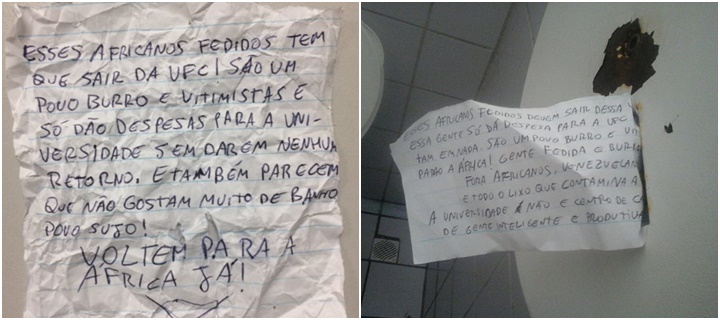 ESSES AFRICANOS FEDIDOS TEM
QUE SAIR DA UFC! SÃO UM
POVO BURRO E VITIMISTAS E
SÓ DÃO DESPESAS PARA A UNI-
VERSIDADE SEM DAREM NENHUM
RETORNO. E TAMBÉM PARECEM
QUE NÃO GOSTAM MUITO DE BANHO
POVO SUJO!
VOLTEM PARA A
ÁFRICA JÁ!
ESSES AFRICANOS FEDIDOS DEVEM SAIR DESSA
ESSA GENTE SÓ DÁ DESPESA PARA A UFC
TAM EM NADA. SÃO UM POVO BURRO E
PARA ÁFRICA! GENTE FEDIDA E BURRA
FORA AFRICANOS, VENEZUELAN
E TODO O LIXO QUE CONTAMINA A
A UNIVERSIDADE NÃO E CENTRO DE CA
DE GENTE INTELIGENTE E PRODUTIVA